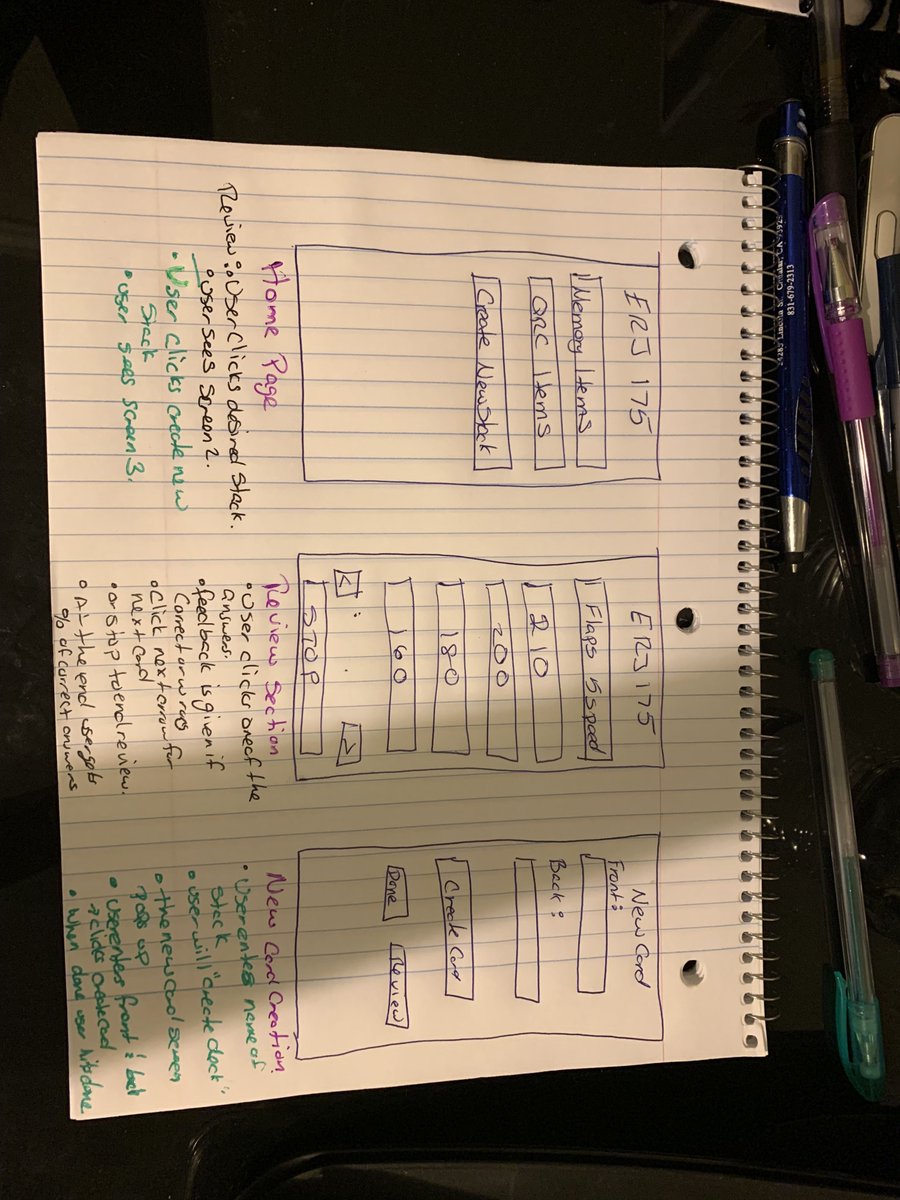 ERJ 175
Memory Items
QRC Items
Create New Stack
Home Page
Review: • User clicks desired Stack.
• User sees Screen 2.
• User clicks create new
Stack
• user sees screen 3.
ERJ 175
Flaps 5 speed
210
200
180
160
<
>
STOP
Review Section
• User clicks one of the
answers.
• feedback is given if
Correct or wrong
• Click next arrow for
next card
• or stop to end review.
• At the end user gets
% of correct answers
New Card
Front:
Back:
Create Card
Done
Review
New Card Creation
• User enters name of
Stack
• user will "create
• the new card screen
pops up
• user enters front & back
→ clicks create card
• when done user hits done
831-679-2313